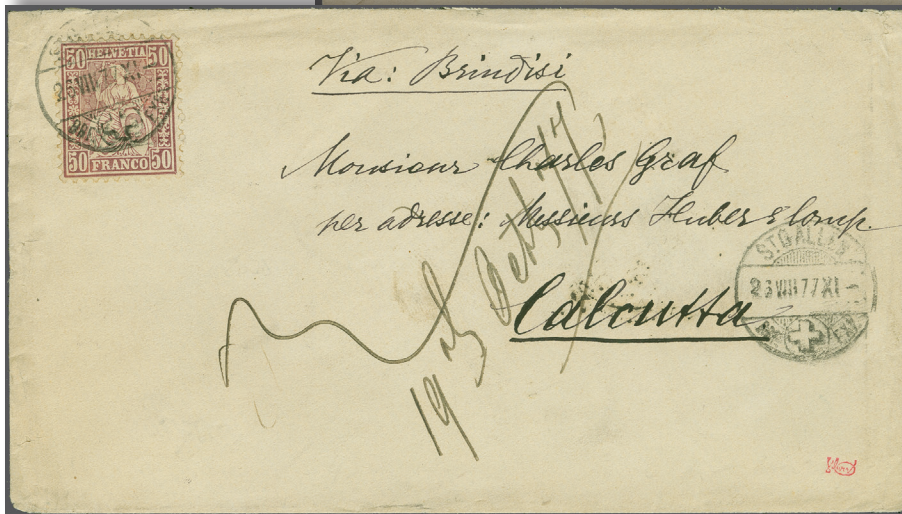 50 HELVETIA 50
50 FRANCO 50
23 VIII 77 XI
Via: Brindisi
Monsieur Charles Graf
per adresse: Messieurs Huber & Comp.
Calcutta
ST. GALLEN
23 VIII 77 XI
19 Oct/77